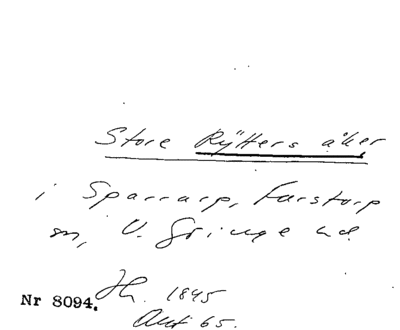 Store Rÿtters åker
i Sparrarp, Farstorp
sn, V. Göinge hd
Jh. 1845
Akt 65.
Nr 8094.